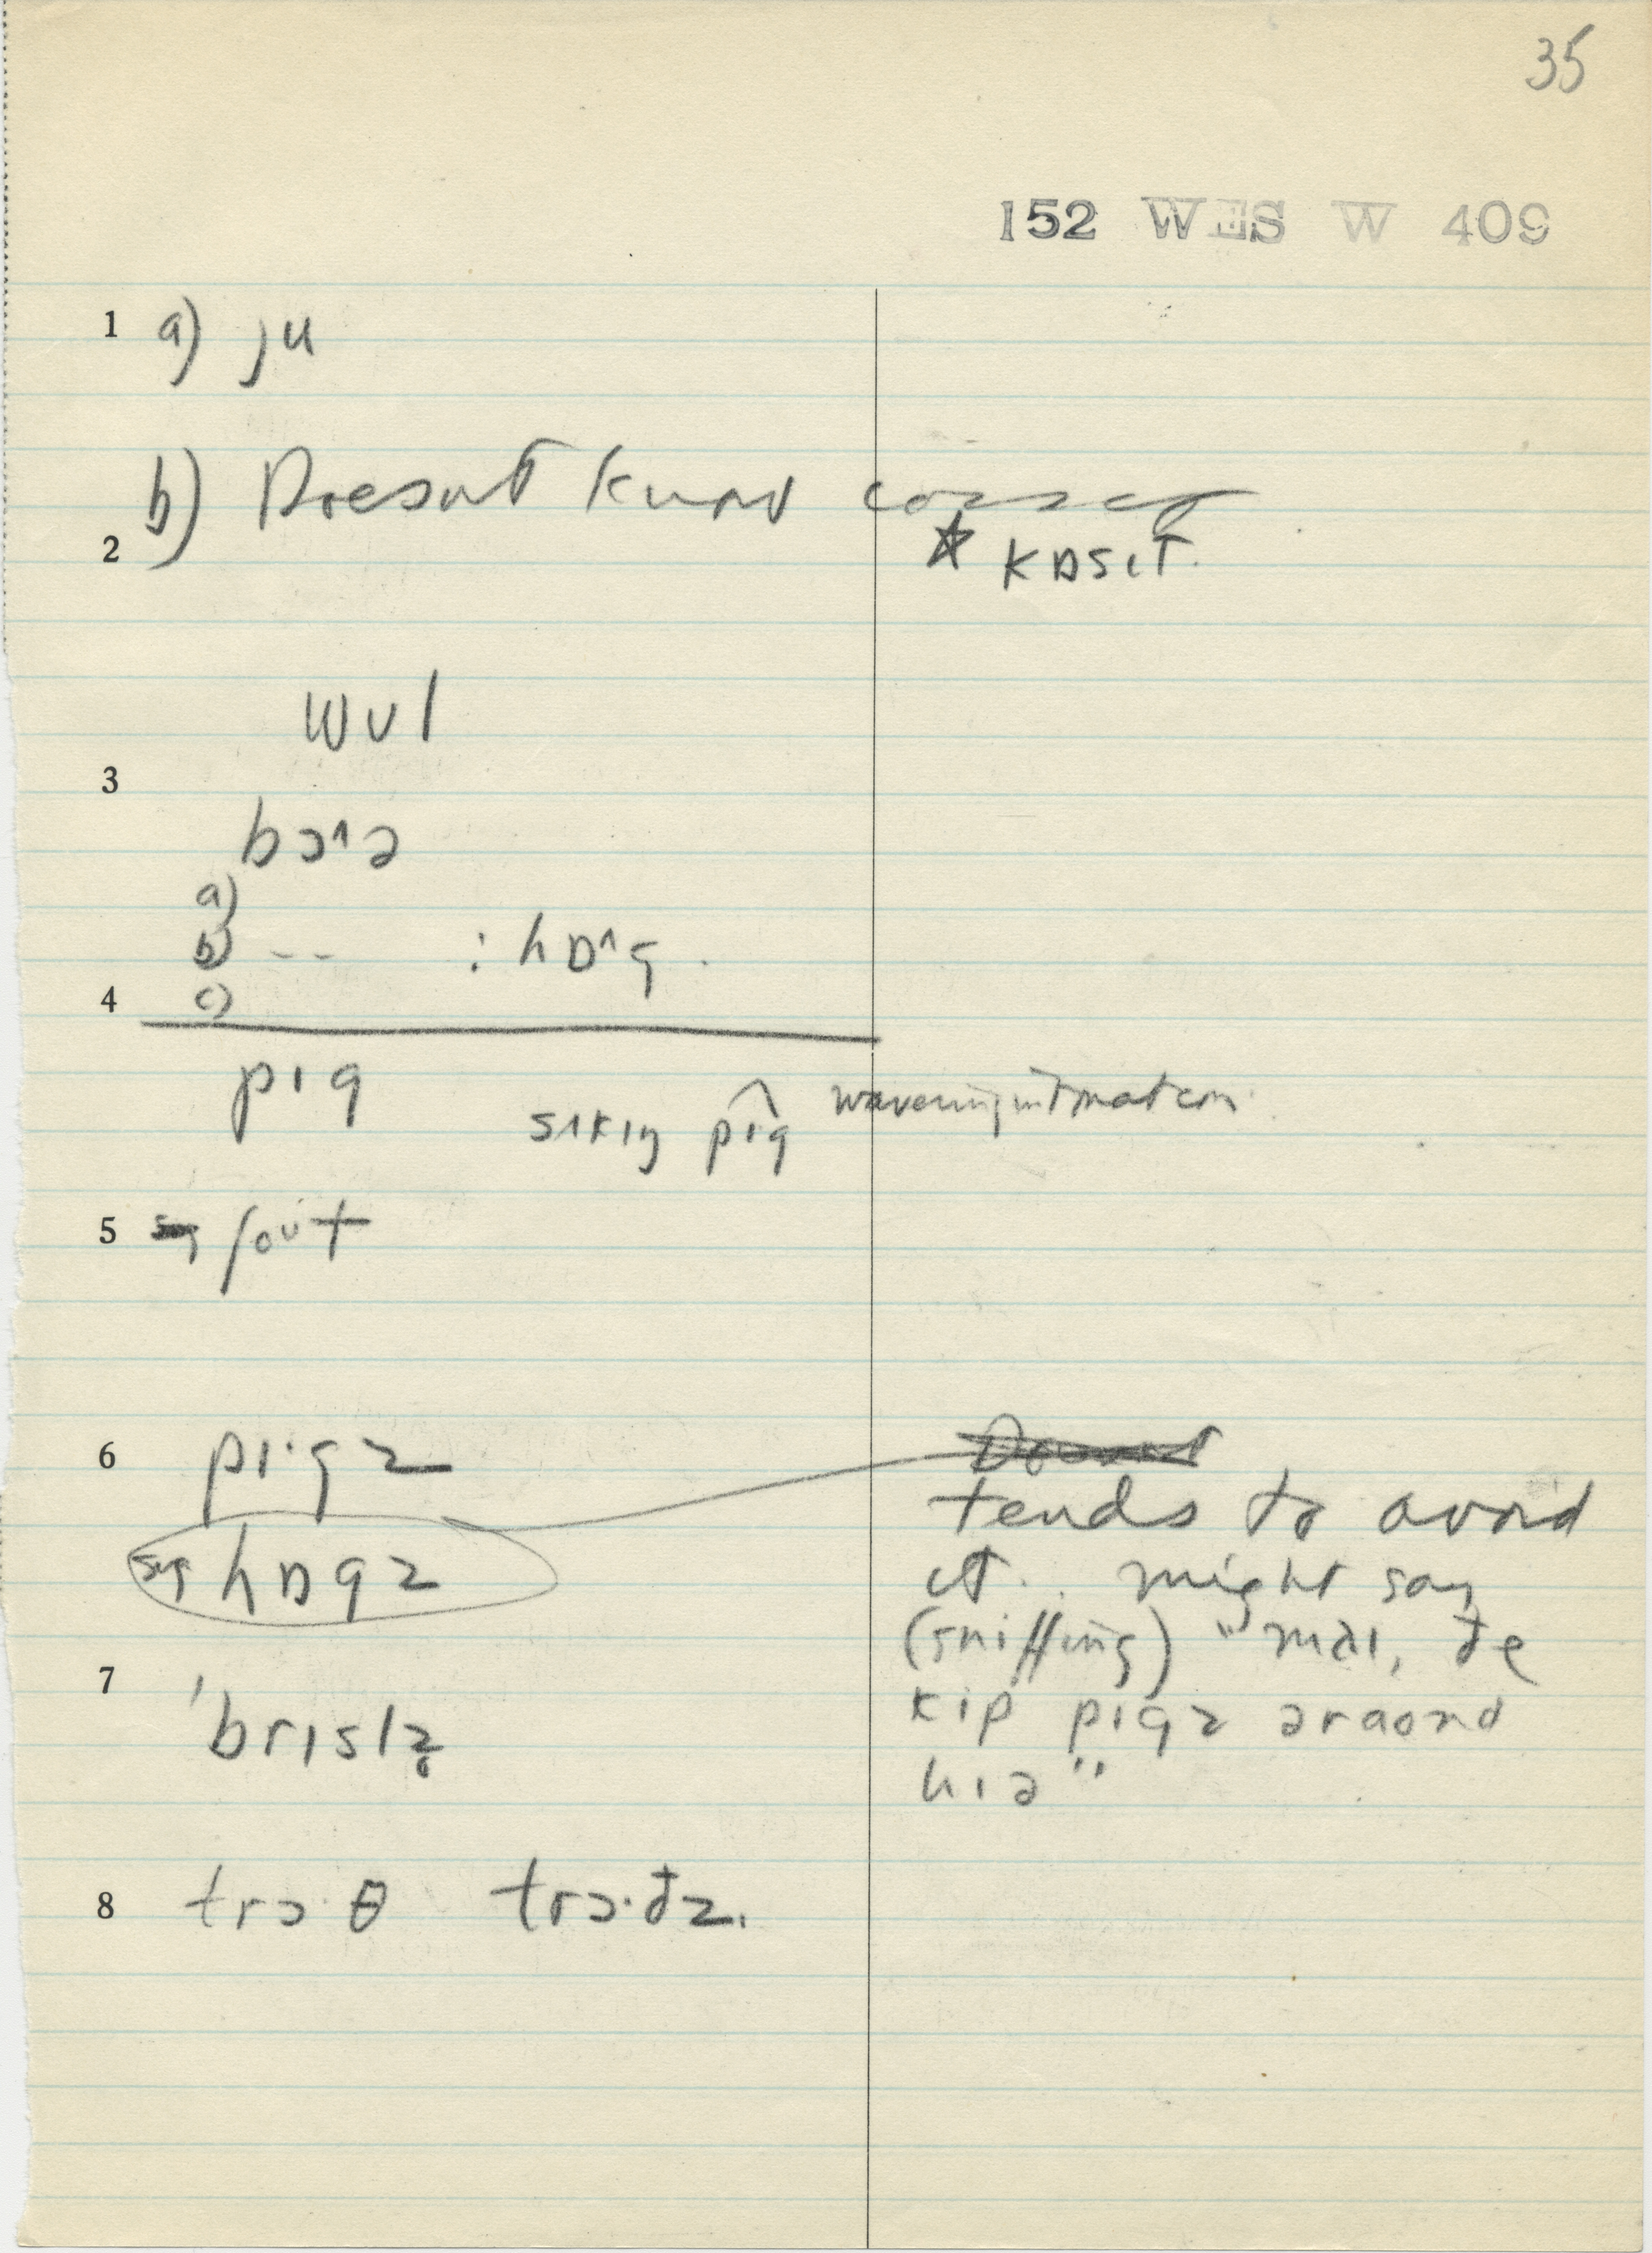 35
152 WES W 409
1 a) ju
b) Doesnt know cosset
2 * kɒsɪt.
wʊl
3
bɔ^ə
a)
b) -- : hɒ^g.
4 c)
pɪg
sʌkɪŋ pɪg wavering intonation
5 ʃoʊt
6 pɪ·gz
tends to avoid
sg hɒgz
it.. might say
(sniffing) "maɪ, ðe
7
kip pɪgz əraʊnd
'brɪslz̥
hɪə"
8 trɔ·θ trɔ·ðz.